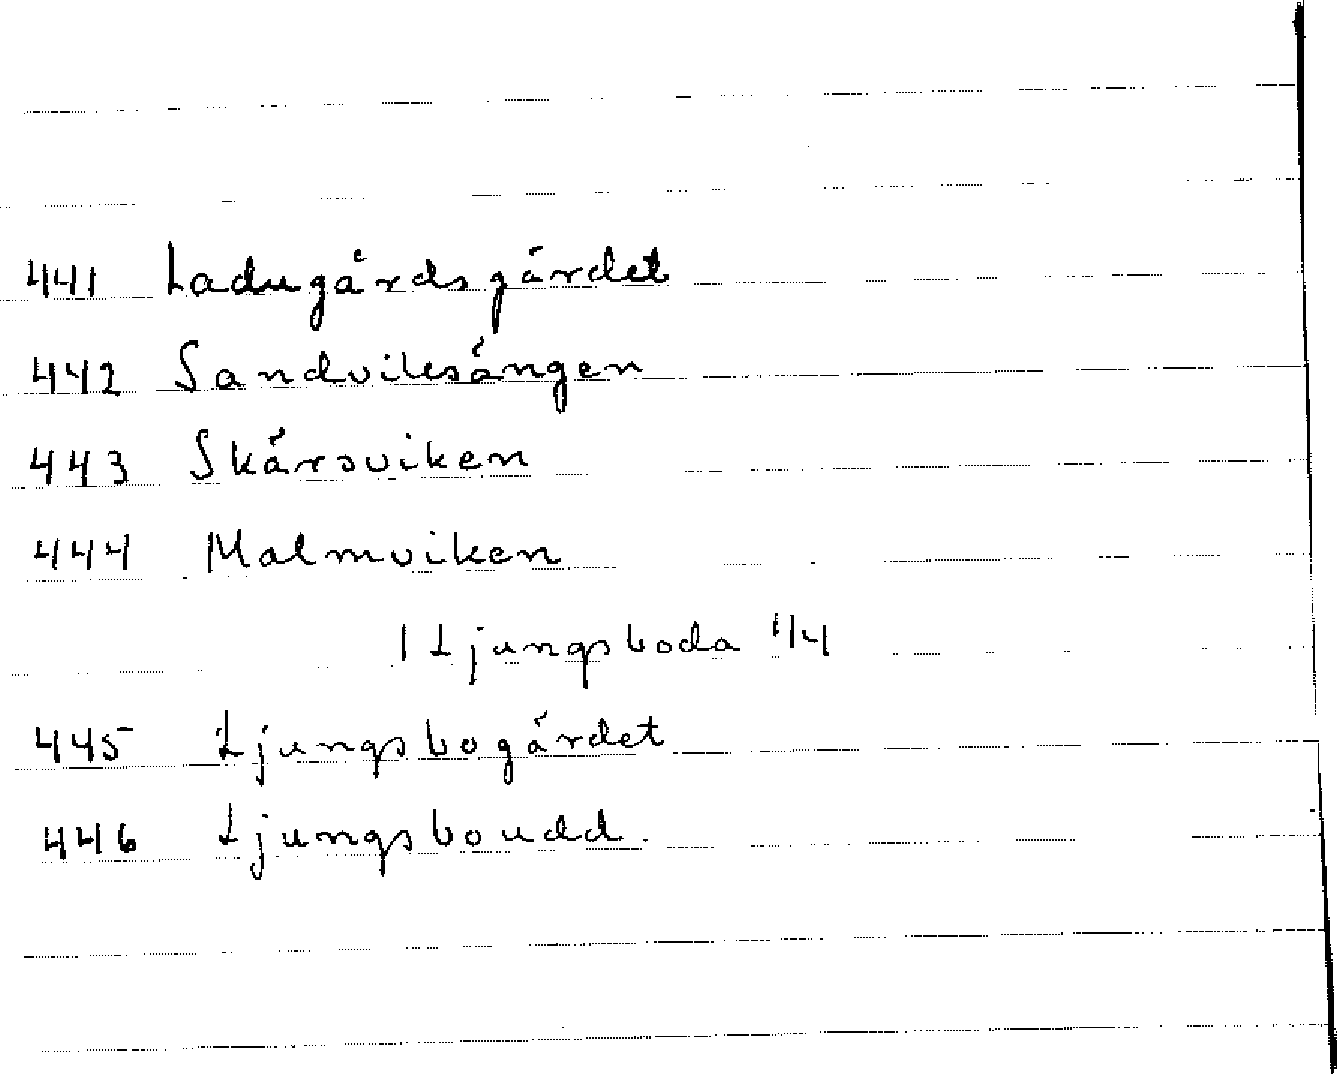 441 Ladugårdsgärdet
442 Sandviksängen
443 Skärsviken
444 Malmviken
1 Ljungsboda 1/4
445 Ljungsbogärdet
446 Ljungsboudd